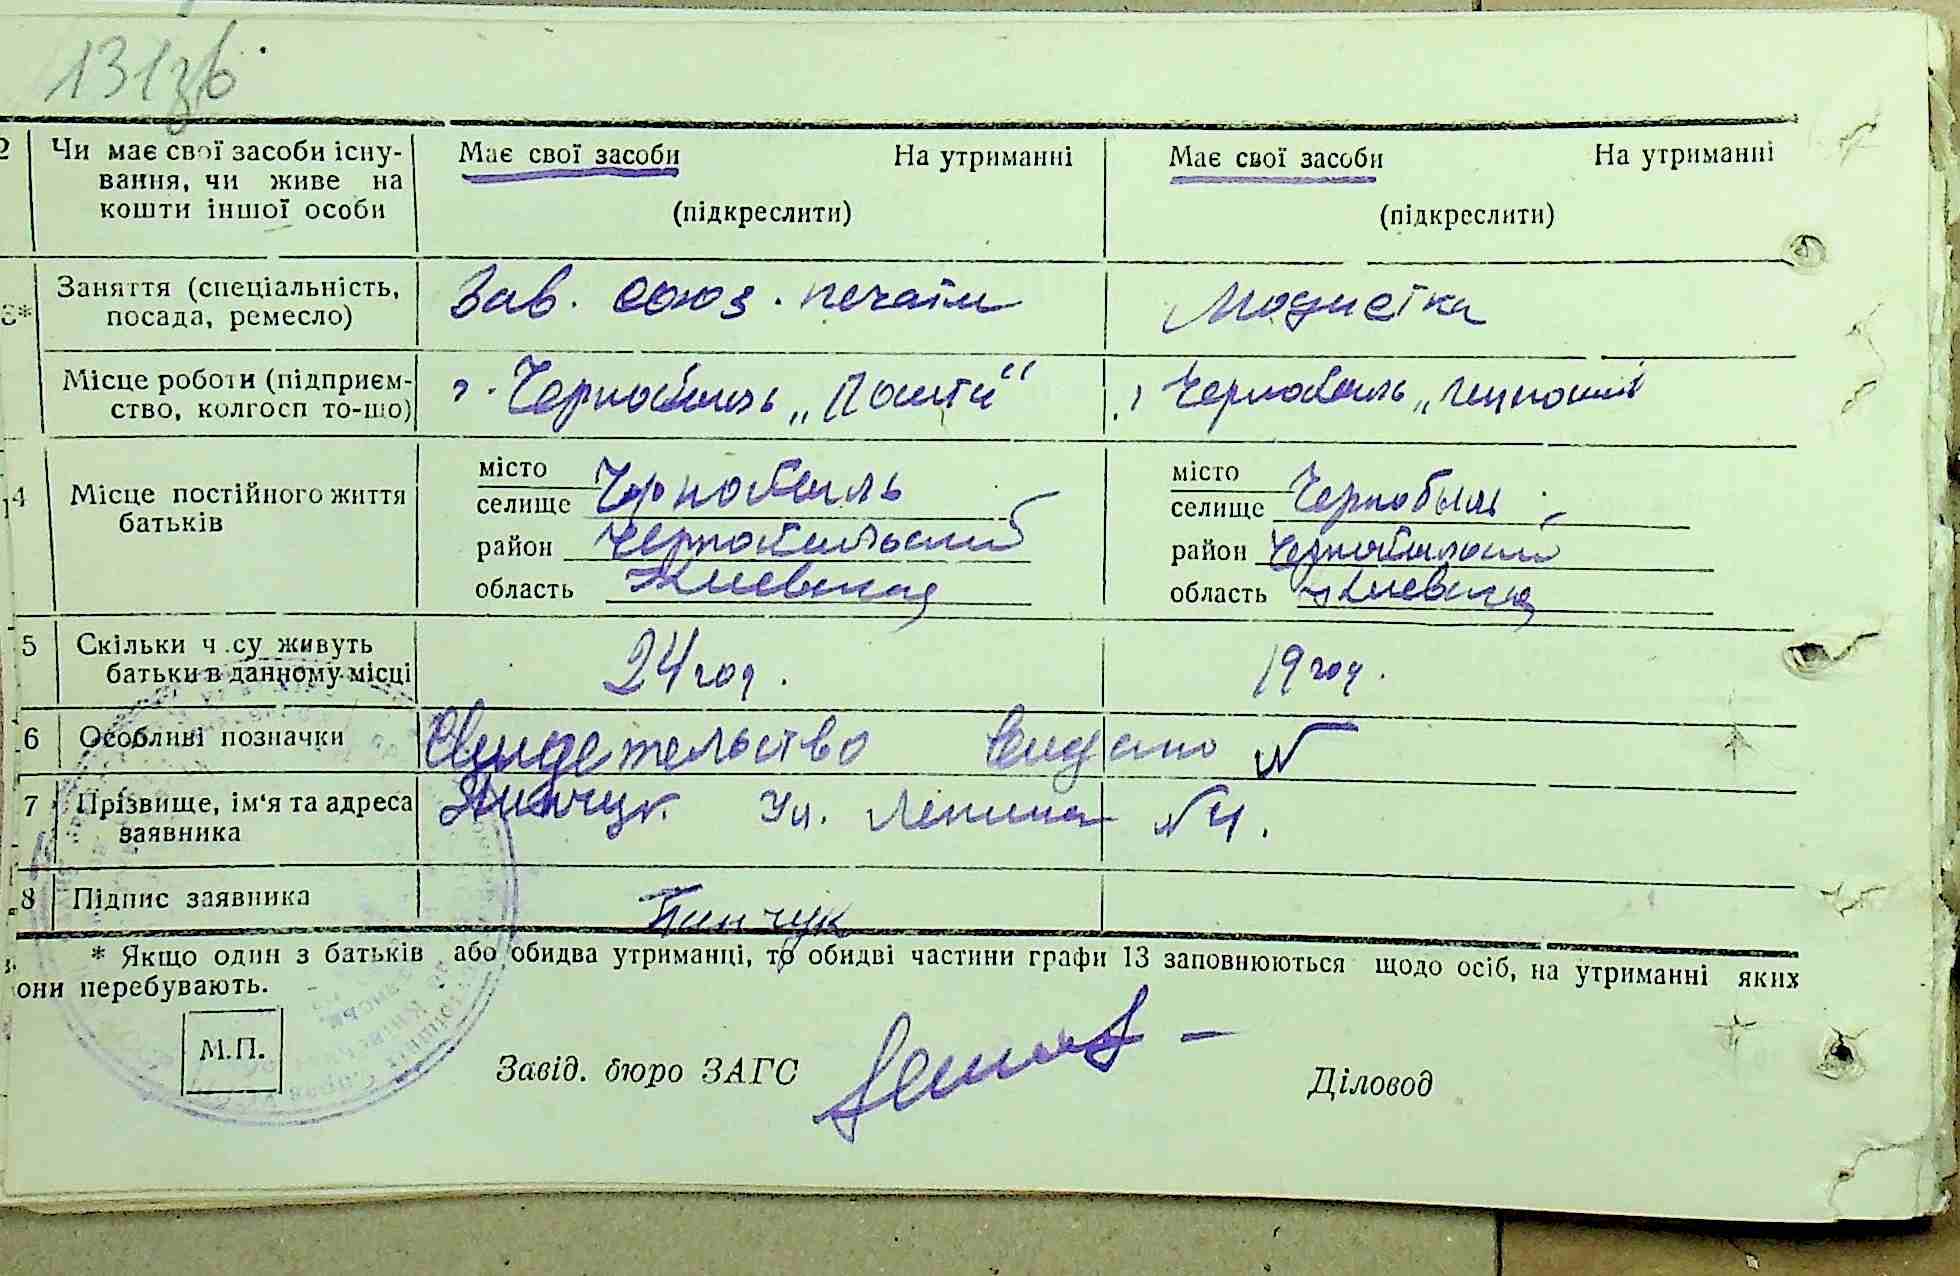 131зв
2 Чи має свої засоби існу- Має свої засоби На утриманні Має свої засоби На утриманні
вання, чи живе на
кошти іншої особи (підкреслити) (підкреслити)
3* Заняття (спеціальність, Зав. союз. печати Модистка
посада, ремесло)
Місце роботи (підприєм- г. Чернобыль „Почта“ г Чернобыль
ство, колгосп то-що)
14 Місце постійного життя місто Чернобыль місто Чернобыль
батьків селище селище
район Чернобыльский район Чернобыльский
область Киевская область Киевская
5 Скільки ч су живуть 24 год. 19 год.
батьки в данному місці
6 Особливі позначки Свидетельство выдано №
7 Прізвище, ім'я та адреса Пинчук Ул. Ленина №4.
заявника
8 Підпис заявника Пинчук
* Якщо один з батьків або обидва утриманці, то обидві частини графи 13 заповнюються щодо осіб, на утриманні яких
они перебувають.
М.П.
Завід. бюро ЗАГС Діловод